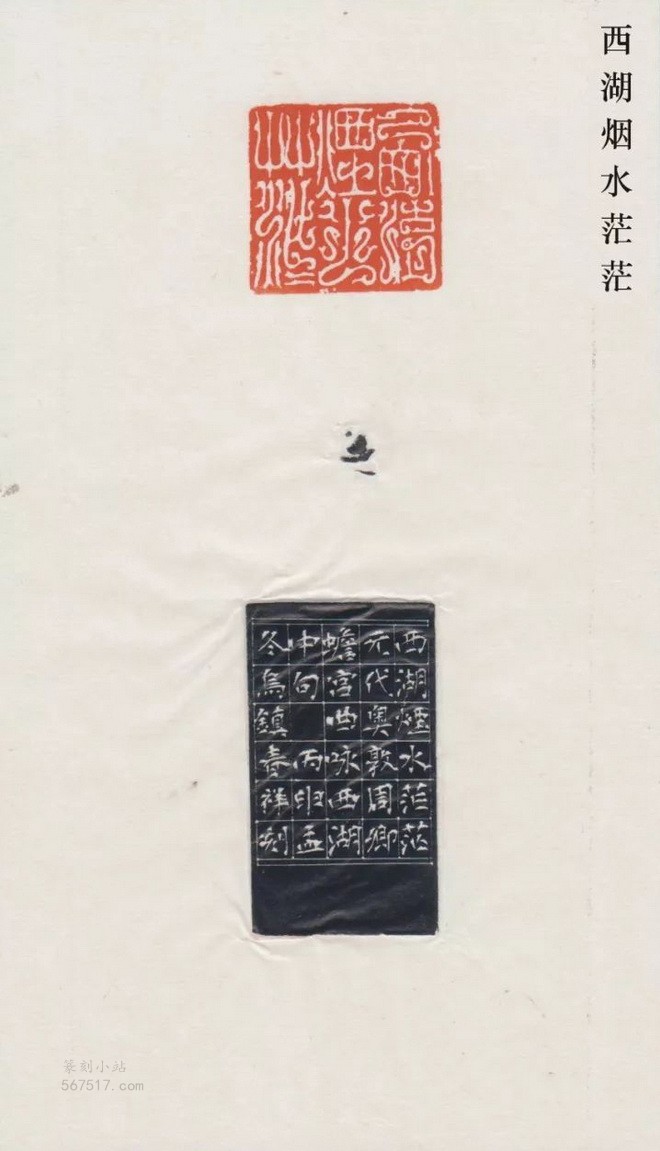 西湖烟水茫茫
西湖煙水茫茫
西湖煙水茫茫
元代奥敦周卿
蟾宫曲咏西湖
中句 丙申孟
冬烏鎮祥刻
篆刻小站
567517.com